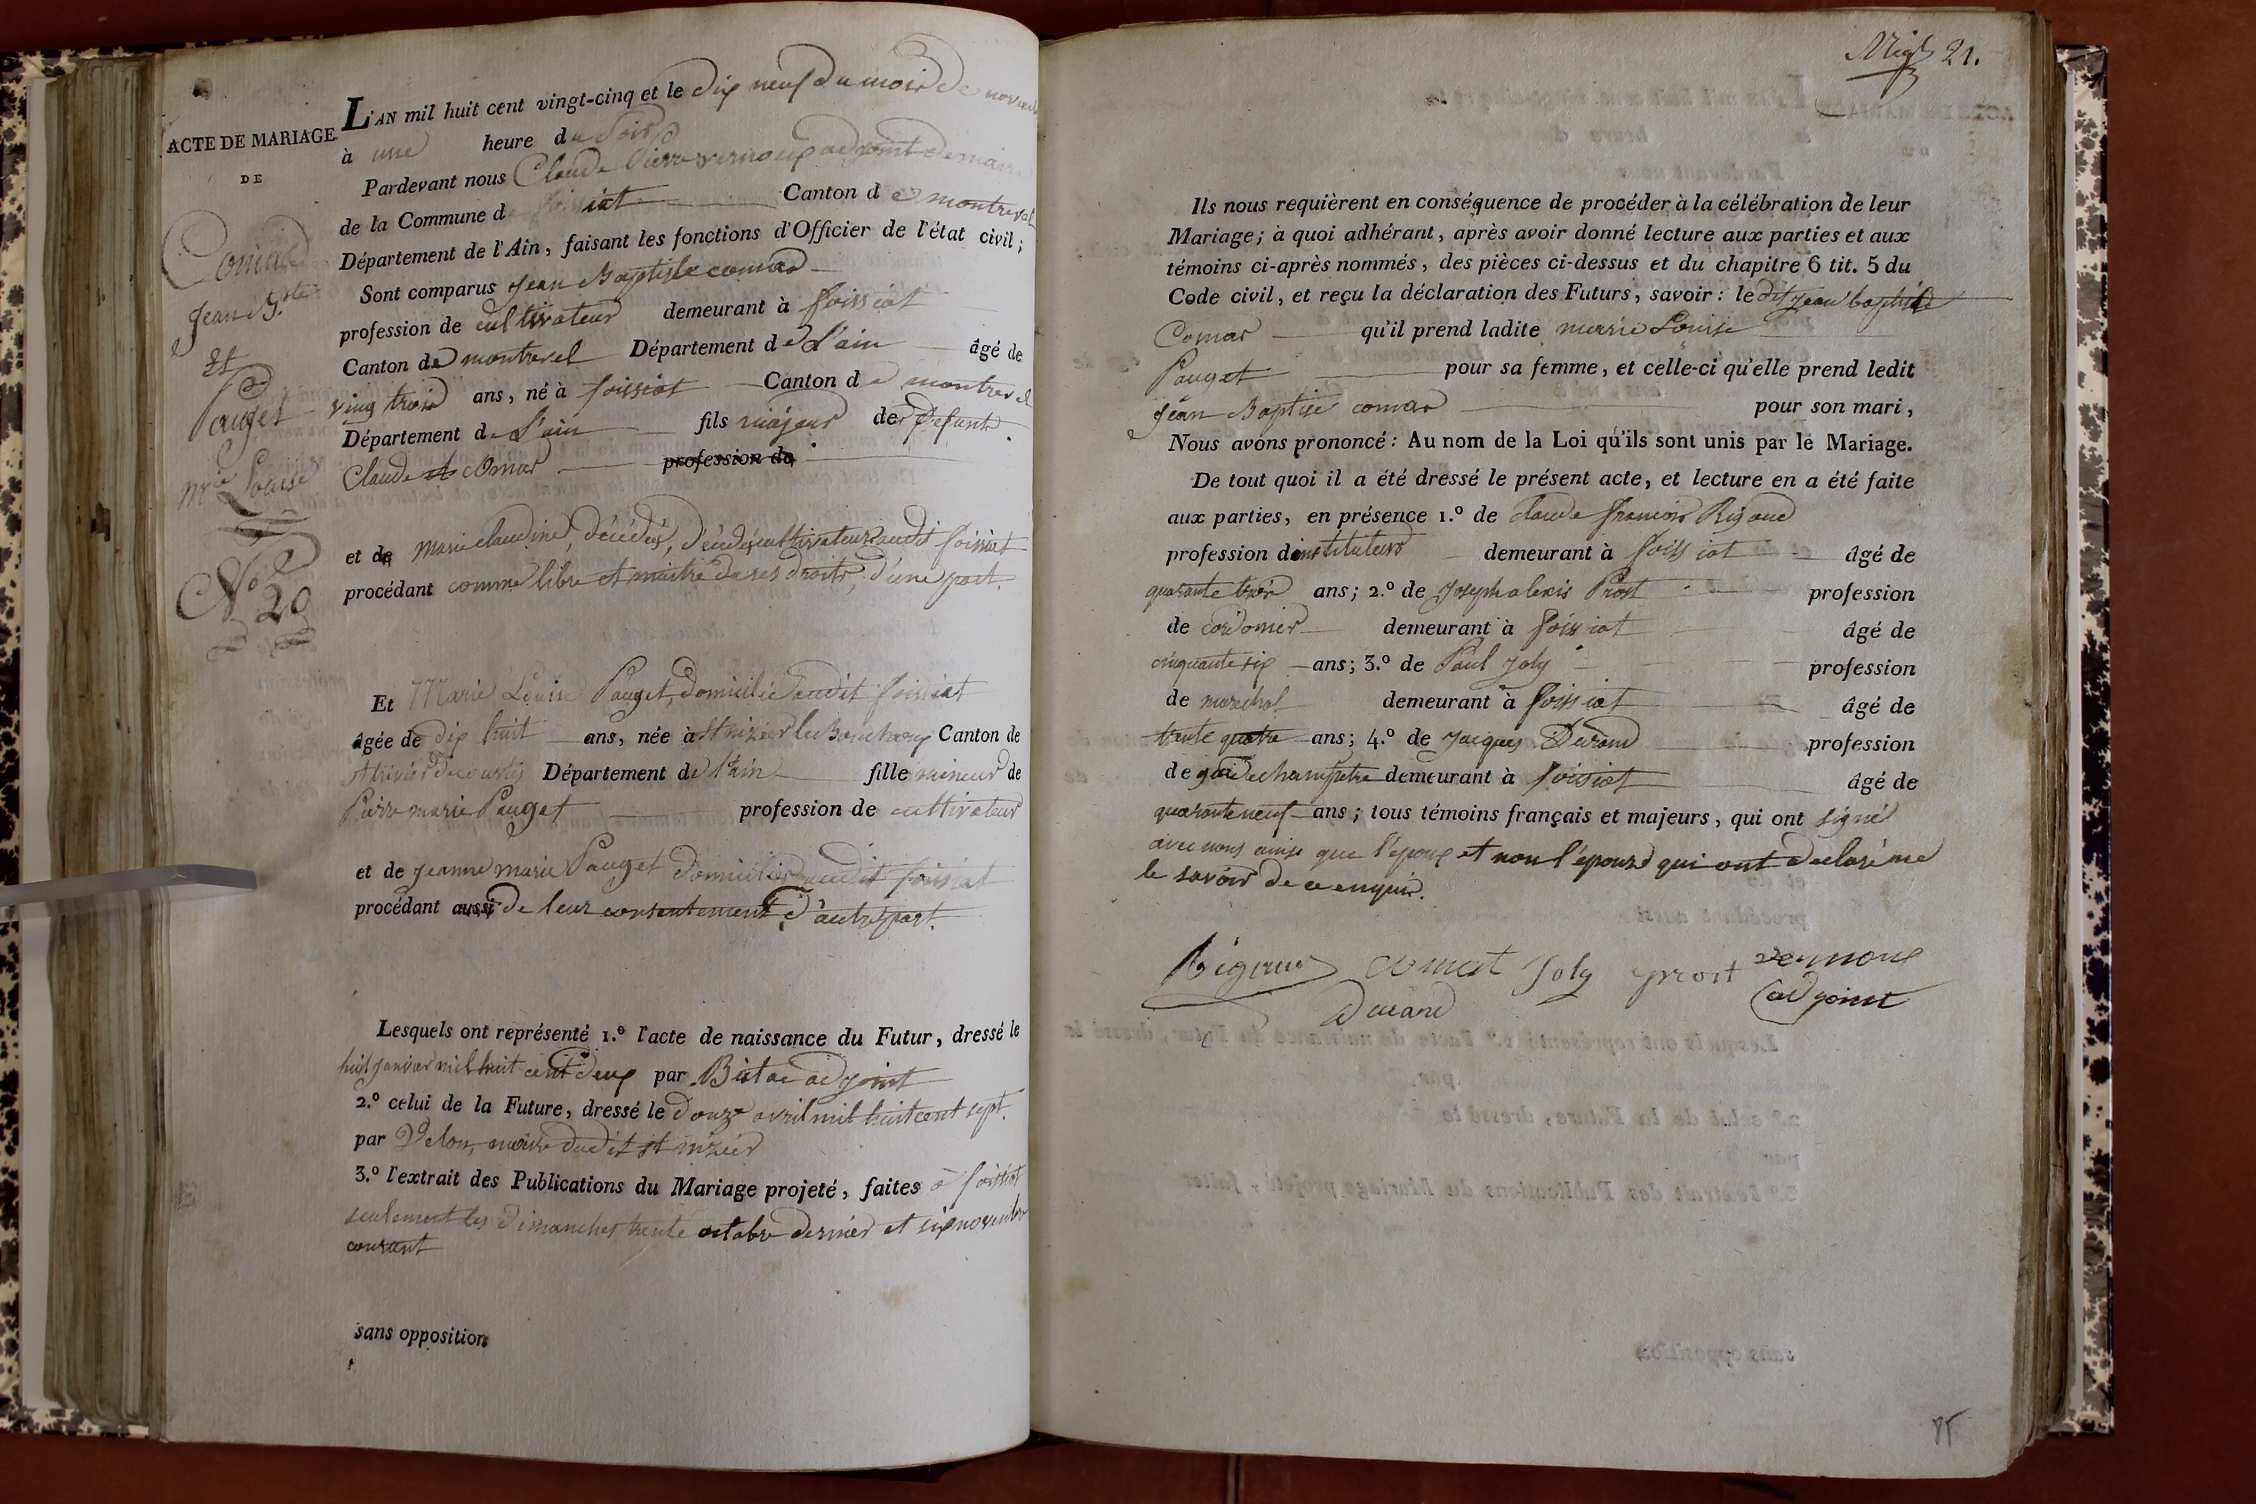 L'AN mil huit cent vingt-cinq et le dix neuf du mois de novembre
à une heure du soir
Pardevant nous Claude Pierre vernoux adjoint de maire
de la Commune de foissiat Canton de montreval
Département de l'Ain, faisant les fonctions d'Officier de l'état civil;
Sont comparus Jean Baptiste comas
profession de cultivateur demeurant à foissiat
Canton de montrevel Département de L'ain âgé de
ving trois ans, né à foissiat Canton de montrevel
Département de L'ain fils majeur de defunts
Claude et comas profession de
et de marie claudine, décédés, cultivateurs audit foissiat
procédant comme libre et maitre de ses droits, d'une part.
Et Marie Louise Pauget, domiciliée audit foissiat
âgée de dix huit ans, née à St nizier le Bouchoux Canton de
St trivier de courtes Département de l'ain fille mineur de
Pierre marie Pauget profession de cultivateur
et de jeanne marie Pauget domiciliés audit foissiat
procédant aussi de leur consentement d'autre part.
Lesquels ont représenté 1.º l'acte de naissance du Futur, dressé le
huit janvier mil huit cent deux par adjoint
2.º celui de la Future, dressé le douze avril mil huit cent sept.
par Velon, maire dudit st nizier
3.º l'extrait des Publications du Mariage projeté, faites à foissiat
seulement les dimanches trente octobre dernier et six novembre
courant
sans opposition
ACTE DE MARIAGE
DE
Comas
Jean Bte
Et
Pauget
Mie Louise
No 20
21.
Ils nous requièrent en conséquence de procéder à la célébration de leur
Mariage; à quoi adhérant, après avoir donné lecture aux parties et aux
témoins ci-après nommés, des pièces ci-dessus et du chapitre 6 tit. 5 du
Code civil, et reçu la déclaration des Futurs, savoir: le dit jean baptiste
Comas qu'il prend ladite marie Louise
Pauget pour sa femme, et celle-ci qu'elle prend ledit
jean Baptise comas pour son mari,
Nous avons prononcé: Au nom de la Loi qu'ils sont unis par le Mariage.
De tout quoi il a été dressé le présent acte, et lecture en a été faite
aux parties, en présence 1.º de claude françois Rigaud
profession d'instituteur demeurant à foissiat âgé de
quarante trois ans; 2.º de Joseph alexis Prost profession
de cordonier demeurant à foissiat âgé de
cinquante six ans; 3.º de Paul Joly profession
de marechal demeurant à foissiat âgé de
trente quatre ans; 4.º de Jacques Durand profession
de garde champetre demeurant à foissiat âgé de
quarante neuf ans; tous témoins français et majeurs, qui ont signé
avec nous ainsi que l'epoux et non l'épouse qui ont declaré ne
le savoir de ce enquis.
Rigaud comat Joly prost vernoux
Durand adjoint
85